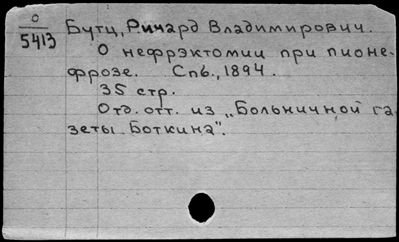 О
5413
Бутц, Ричард Владимирович.
О нефрэктомии при пионе-
фрозе. Спб., 1894.
35 стр.
Отд. отт. из „Больничной га-
зеты Боткина".